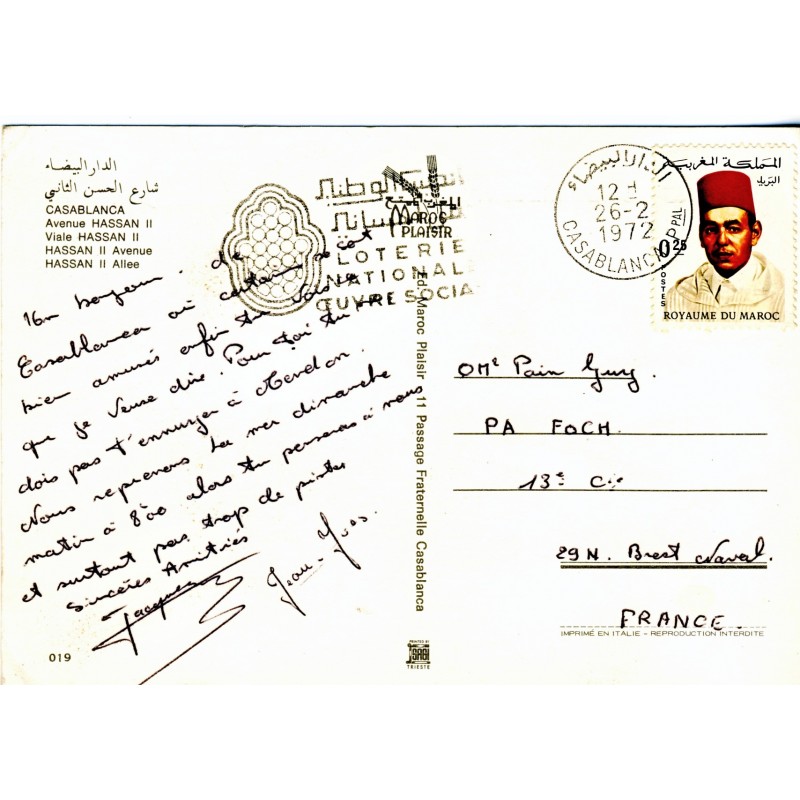 الدار البيضاء
شارع الحسن الثاني
CASABLANCA
Avenue HASSAN II
Viale HASSAN II
HASSAN II Avenue
HASSAN II Allee
المغرب الممتع
MAROC
PLAISIR
LOTERIE
NATIONALE
ŒUVRE SOCIA
الدار البيضاء
12 H
26-2
1972
CASABLANCA PPAL
المملكة المغربية
البريد
0,25
POSTES
ROYAUME DU MAROC
de
Casablanca où certains se sont
bien amusés enfin tu vois ce
que je veux dire. Pour toi tu ne
dois pas t'ennuyer à
Nous reprenons la mer dimanche
matin à 8h00 alors tu penseras à nous
et surtout pas trop de pintes
Sincères Amitiés
Jacques
Jean-Yves
Ed. Maroc Plaisir - 11 Passage Fraternelle Casablanca
OMe Pain Guy.
PA FOCH.
13e Cie
29N. Brest Naval.
FRANCE.
IMPRIMÉ EN ITALIE - REPRODUCTION INTERDITE
019
PRINTED BY
SABI
TRIESTE